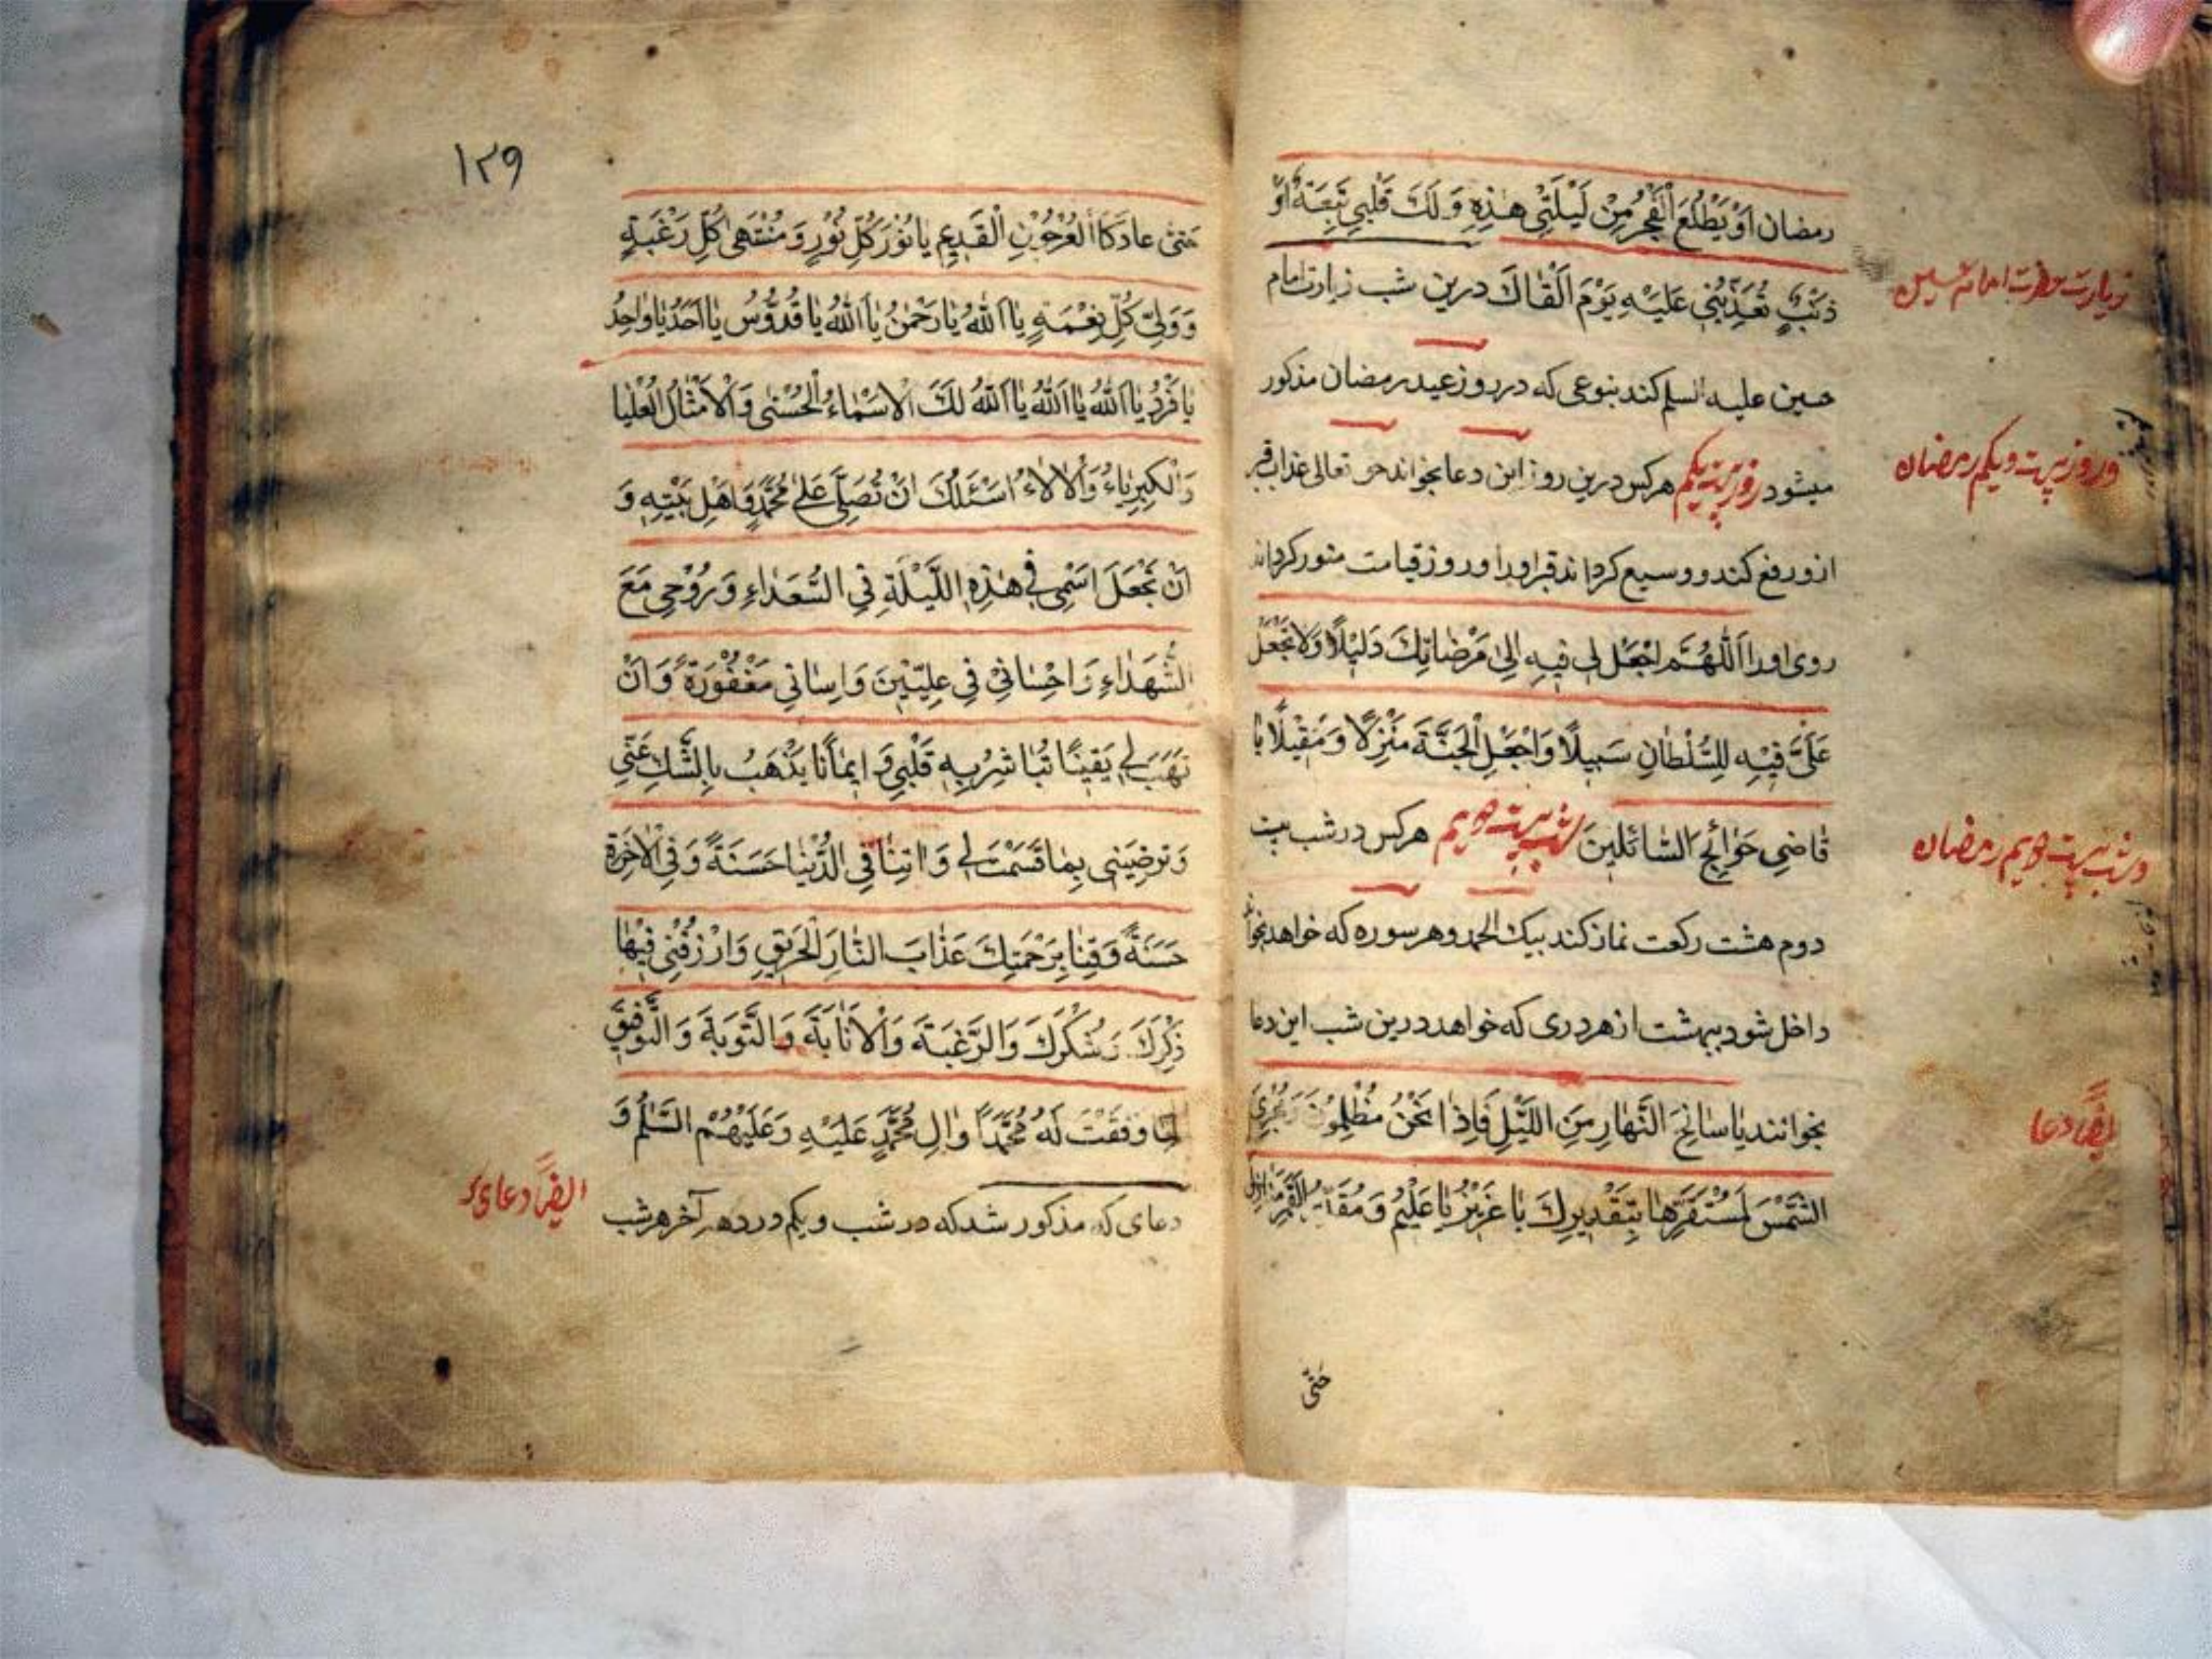 رمضان اَوْ يَطْلُعَ الْفَجْرُ مِنْ لَيْلَتِي هٰذِهِ وَ لَكَ قَبَلِي تَبِعَةٌ اَوْ
ذَنْبٌ تُعَذِّبُنِي عَلَيْهِ يَوْمَ اَلْقَاكَ درين شب زيارت امام
زيارت حضرت امام حسين
حسين عليه السلم كند بنوعى كه در روز عيد رمضان مذكور
ميشود روز بيست يكم هركس درين روز اين دعا بخواند حق تعالى عذاب قبر
در روز بيست و يكم رمضان
ازو رفع كند و وسيع گرداند قبر اورا و روز قيامت منور گرداند
روى اورا اَللّٰهُمَّ اجْعَلْ لِي فِيهِ اِلىٰ مَرْضَاتِكَ دَلِيْلًا وَلَا تَجْعَلْ
عَلَيَّ فِيْهِ لِلسُّلْطَانِ سَبِيلًا وَاجْعَلِ الْجَنَّةَ مَنْزِلًا وَ مَقِيْلًا يَا
قَاضِي حَوَائِجِ السَّائِلِينَ شب بيست دويم هركس در شب بيست
در شب بيست دويم رمضان
دوم هشت ركعت نماز كند بيك الحمد و هر سوره كه خواهد بخواند
داخل شود ببهشت از هر درى كه خواهد درين شب اين دعا
بخوانند يَا سَالِخَ النَّهَارِ مِنَ اللَّيْلِ فَاِذَا نَحْنُ مُظْلِمُوْنَ وَ مُجْرِيَ
ايضًا دعا
الشَّمْسِ لِمُسْتَقَرِّهَا بِتَقْدِيرِكَ يَا عَزِيْزُ يَا عَلِيْمُ وَ مُقَدِّرَ الْقَمَرِ مَنَازِلَ
حتى
١٢٩
حَتّىٰ عَادَ كَالْعُرْجُوْنِ الْقَدِيْمِ يَا نُوْرَ كُلِّ نُوْرٍ وَ مُنْتَهىٰ كُلِّ رَغْبَةٍ
وَ وَلِيَّ كُلِّ نِعْمَةٍ يَا اَللّٰهُ يَا رَحْمٰنُ يَا اَللّٰهُ يَا قُدُّوْسُ يَا اَحَدُ يَا وَاحِدُ
يَا فَرْدُ يَا اَللّٰهُ يَا اَللّٰهُ يَا اَللّٰهُ لَكَ الْاَسْمَاءُ الْحُسْنىٰ وَالْاَمْثَالُ الْعُلْيَا
وَالْكِبْرِيَاءُ وَالْاٰلَاءُ اَسْئَلُكَ اَنْ تُصَلِّيَ عَلىٰ مُحَمَّدٍ وَاَهْلِ بَيْتِهِ وَ
اَنْ تَجْعَلَ اسْمِي فِي هٰذِهِ اللَّيْلَةِ فِي السُّعَدَاءِ وَ رُوْحِي مَعَ
الشُّهَدَاءِ وَ اِحْسَانِي فِي عِلِّيِّيْنَ وَ اِسَاتِي مَغْفُوْرَةً وَ اَنْ
تَهَبَ لِي يَقِيْنًا تُبَاشِرُ بِهِ قَلْبِي وَ اِيمَانًا يَذْهَبُ بِالشَّكِّ عَنِّي
وَ تُرْضِيَنِي بِمَا قَسَمْتَ لِي وَ اٰتِنَا فِي الدُّنْيَا حَسَنَةً وَ فِي الْاٰخِرَةِ
حَسَنَةً وَ قِنَا بِرَحْمَتِكَ عَذَابَ النَّارِ الْحَرِيْقِ وَ ارْزُقْنِي فِيْهَا
ذِكْرَكَ وَ شُكْرَكَ وَ الرَّغْبَةَ وَالْاِنَابَةَ وَ التَّوْبَةَ وَ التَّوْفِيْقَ
لِمَا وَفَّقْتَ لَهُ مُحَمَّدًا وَ اٰلِ مُحَمَّدٍ عَلَيْهِ وَ عَلَيْهِمُ السَّلَامُ وَ
دعاى كه مذكور شد كه در شب و يكم در دهه آخر هر شب
ايضًا دعاى كه